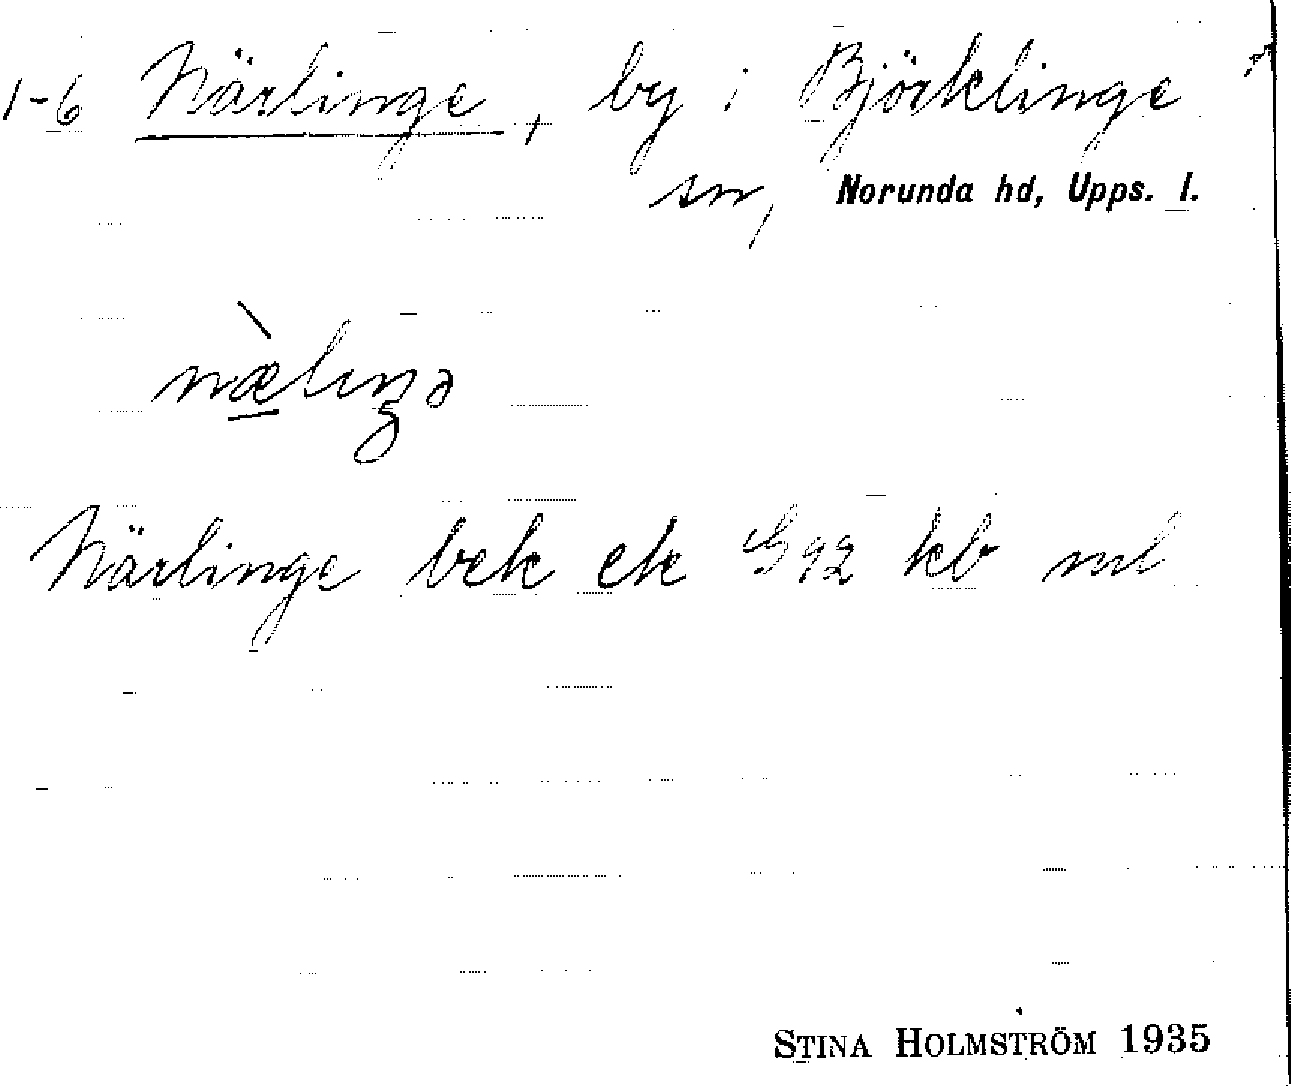 1-6 Närlinge, by i Björklinge
sn, Norunda hd, Upps. l.
Närlinge bek ek G92 kb ml
STINA HOLMSTRÖM 1935